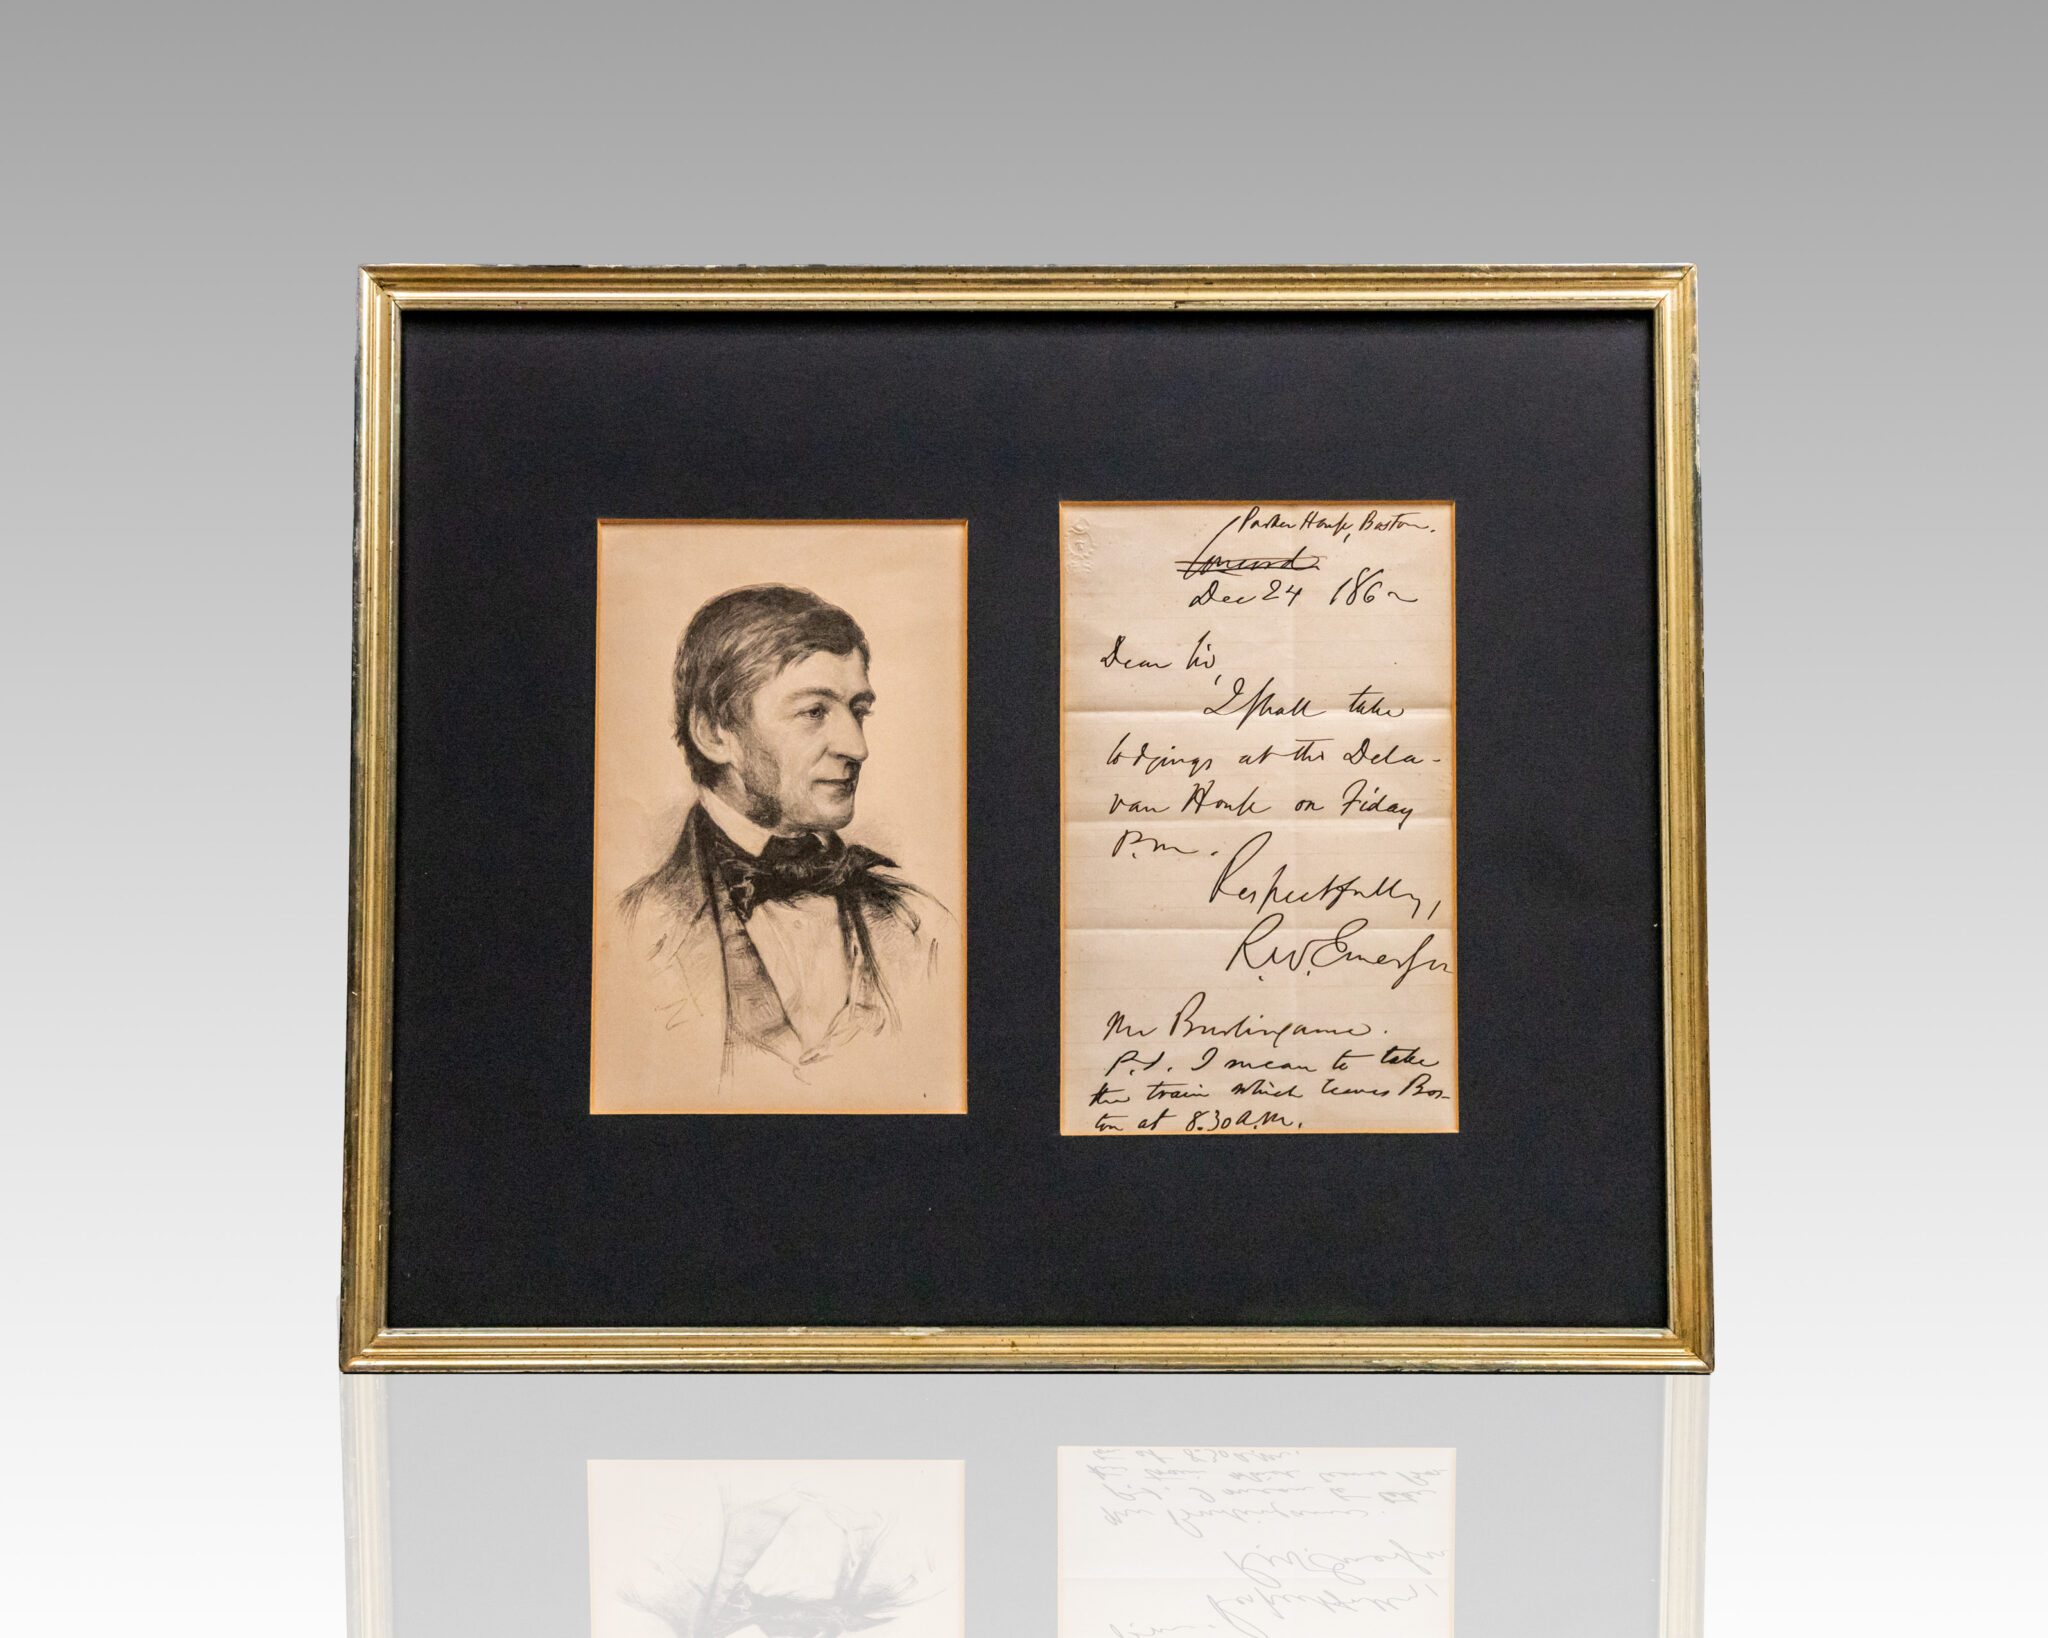 Parker House, Boston.
Concord
Dec 24 1862
Dear Sir,
I shall take
lodgings at the Dela-
van House on Friday
P.M.
Respectfully,
R.W. Emerson
Mr Burlingame.
P.S. I mean to take
the train which leaves Bos-
ton at 8.30 A.M.